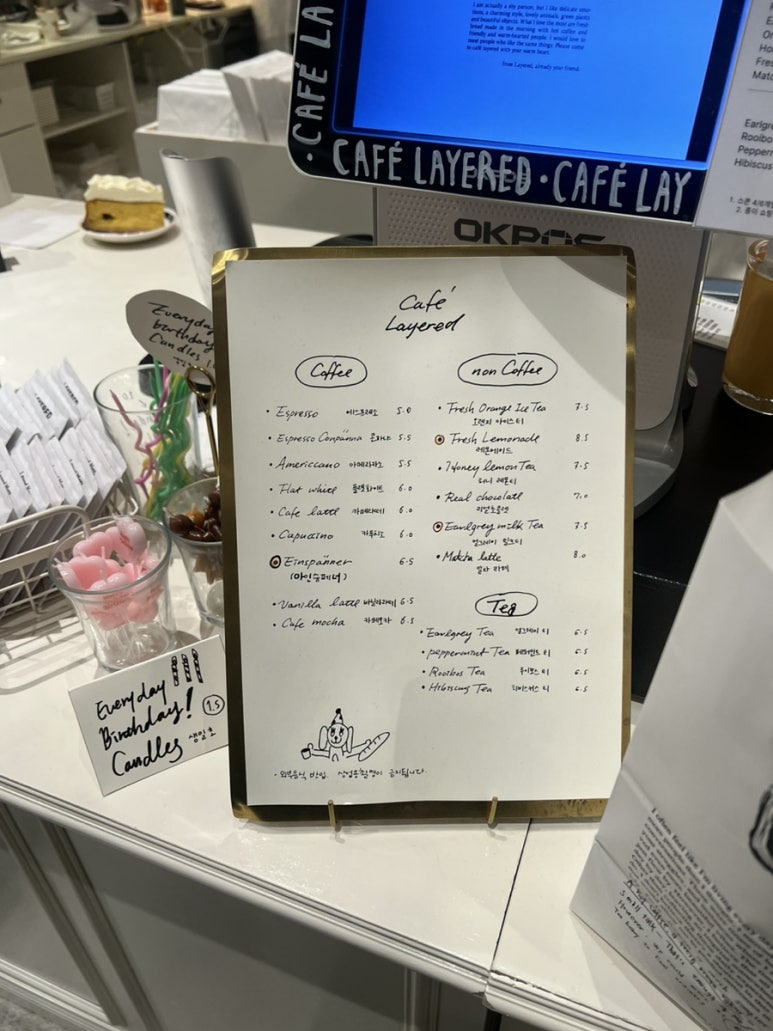 I am actually a shy person, but I like delicate emo-
tions, a charming style, lovely animals, green plants
and beautiful objects. What I love the most are fresh
bread made in the morning with hot coffee and
friendly and warm-hearted people. I would love to
meet people who like the same things. Please come
to café layered with your warm heart.
from Layered, already your friend.
CAFÉ LA
· CAFÉ LAYERED · CAFÉ LAY
OKPOS
Earlgre
Rooibo
Pepperm
Hibiscus
Everyday
birthday
Candles
Café
Layered
Coffee
• Espresso 에스프레소 5.0
• Espresso Conpänna 콘파냐 5.5
• Americcano 아메리카노 5.5
• Flat white 플랫화이트 6.0
• Cafe latte 카페라떼 6.0
• Capuccino 카푸치노 6.0
Einspänner 6.5
(아인슈페너)
• Vanilla latte 바닐라라떼 6.5
• Cafe mocha 카페모카 6.5
non Coffee
• Fresh Orange Ice Tea 7.5
오렌지 아이스티
Fresh Lemonade 8.5
레몬에이드
• Honey lemon Tea 7.5
허니 레몬티
• Real chocolate 7.0
리얼초콜렛
Earlgrey milk Tea 7.5
얼그레이 밀크티
• Matcha latte 8.0
말차 라떼
Tea
• Earlgrey Tea 얼그레이 티 6.5
• peppermint Tea 페퍼민트 티 6.5
• Rooibos Tea 루이보스 티 6.5
• Hibiscus Tea 히비스커스 티 6.5
• 외부음식 반입, 상업용촬영이 금지됩니다.
Everyday
Birthday! 1.5
Candles 생일초
I often feel like I'm living